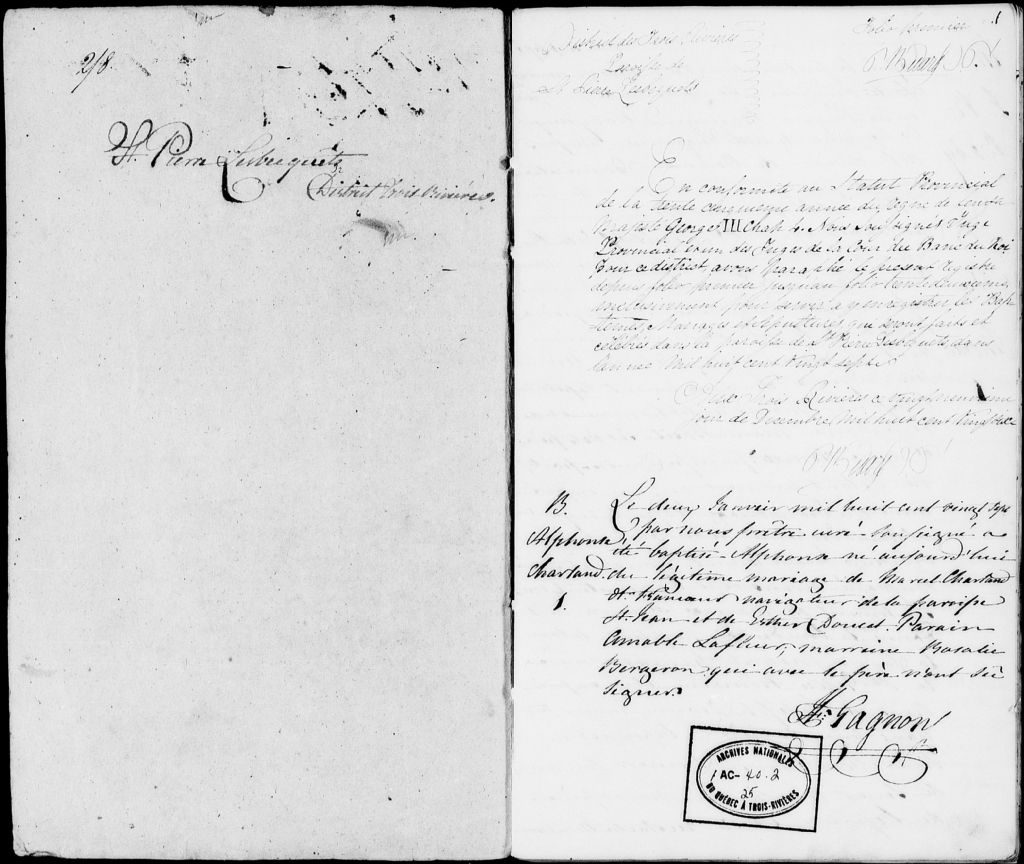 2/8.
St. Pierre Lesbecquets
District Trois Rivières.
1
District des Trois Rivières
Folio premier
Paroisse de
St Pierre Lesbequets
En conformité au Statut Provincial
de la trente cinquieme année du regne de
Majesté George III Chap 4. Nous soussignés Juge
Provincial et un des Juges de la Cour du Banc du Roi
pour ce district, avons paraphé le present registre
depuis folio premier jusqu'au folio
inclusivement pour servir a y enregistrer les Bap
temes, Mariages et Sépultures qui seront faits et
célébrés dans la paroisse de St Pierre Lesbequets dans
l'année Mil huit cent Vingt Sept.
Trois Rivières ce vingt neuvieme
jour de Decembre Mil huit cent Vingt
B.
Alphonse
Charland.
1.
Le deux Janvier mil huit cent vingt sept
par nous prêtre curé soussigné a
été baptisé Alphonse né aujourd'hui
du légitime mariage de Marcel Charland
navigateur de la paroisse
St Jean et de Esther Doucet. Parain
Amable Lafleur, marreine Rosalie
Bergeron qui avec le père n'ont sû
signer.
Gagnon
ARCHIVES NATIONALES
AC- 40.2
25
DU QUÉBEC À TROIS-RIVIÈRES